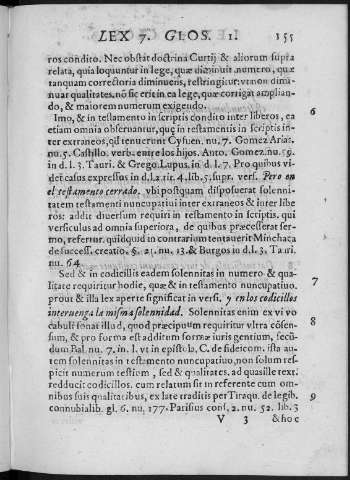 LEX 7. GLOS. 1. 155
ros condito. Nec obstat doctrina Curtij & aliorum supra
relata, quia loquuntur in lege, quæ diminuit numero, quæ
tanquam correctoria diminuens, restringitur: vt non dimi-
nuat qualitates. nō sic erit in ea lege, quæ corrigat amplian-
do, & maiorem numerum exigendo.
6
Imo, & in testamento in scriptis condito inter liberos, ea
etiam omnia obseruantur, quę in testamentis in scriptis in-
ter extraneos, qđ tenuerunt Cyfuen. nu. 7. Gomez Arias.
nu. 5. Castillo. verb. entre los hijos. Anto. Gomez nu. 59.
in d. l. 3. Tauri. & Grego. Lupus. in d. l. 7. Pro quibus vi-
det casus expressus in d. l. 2. tit. 4. lib. 5. supr. vers. Pero en
el testamento cerrado. vbi postquam disposuerat solenni-
tatem testamenti nuncupatiui inter extraneos & inter libe
ros: addit diuersum requiri in testamento in scriptis. qui
versiculus ad omnia superiora, de quibus præcesserat ser-
mo, refertur. quidquid in contrarium tentauerit Minchaca
de success. creatio. §. 21. nu. 13. & Burgos in d. l. 3. Tauri.
nu. 64.
7
Sed & in codicillis eadem solennitas in numero & qua-
litate requiritur hodie, quæ & in testamento nuncupatiuo.
prout & illa lex aperte significat in versi. y en los codicillos
interuenga la misma solennidad. Solennitas enim ex vi vo
8
cabuli sonat illud, quod præcipuum requiritur vltra cōsen-
sum, & pro forma est additum formæ iuris gentium, secū-
dum Bal. nu. 7. in. l. vt in epist. b. C. de fideicom. ista au-
tem solennitas in testamento nuncupatiuo, non solum res-
picit numerum testium, sed & qualitates. ad quasille text.
redducit codicillos. cum relatum sit in referente cum om-
nibus suis qualitatibus, ex late traditis per Tiraqu. de legib.
9
connubialib. gl. 6. nu. 177. Parisius cons. 2. nu. 52. lib. 3
V 3 & hoc